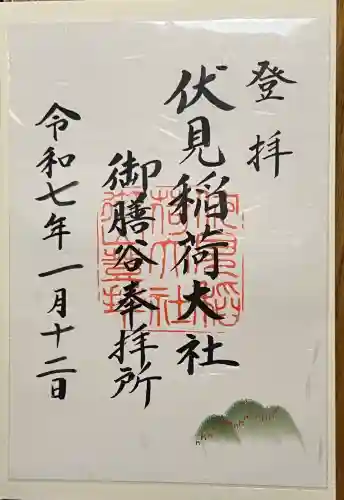 登拝
伏見稲荷大社
御膳谷奉拝所
令和七年一月十二日